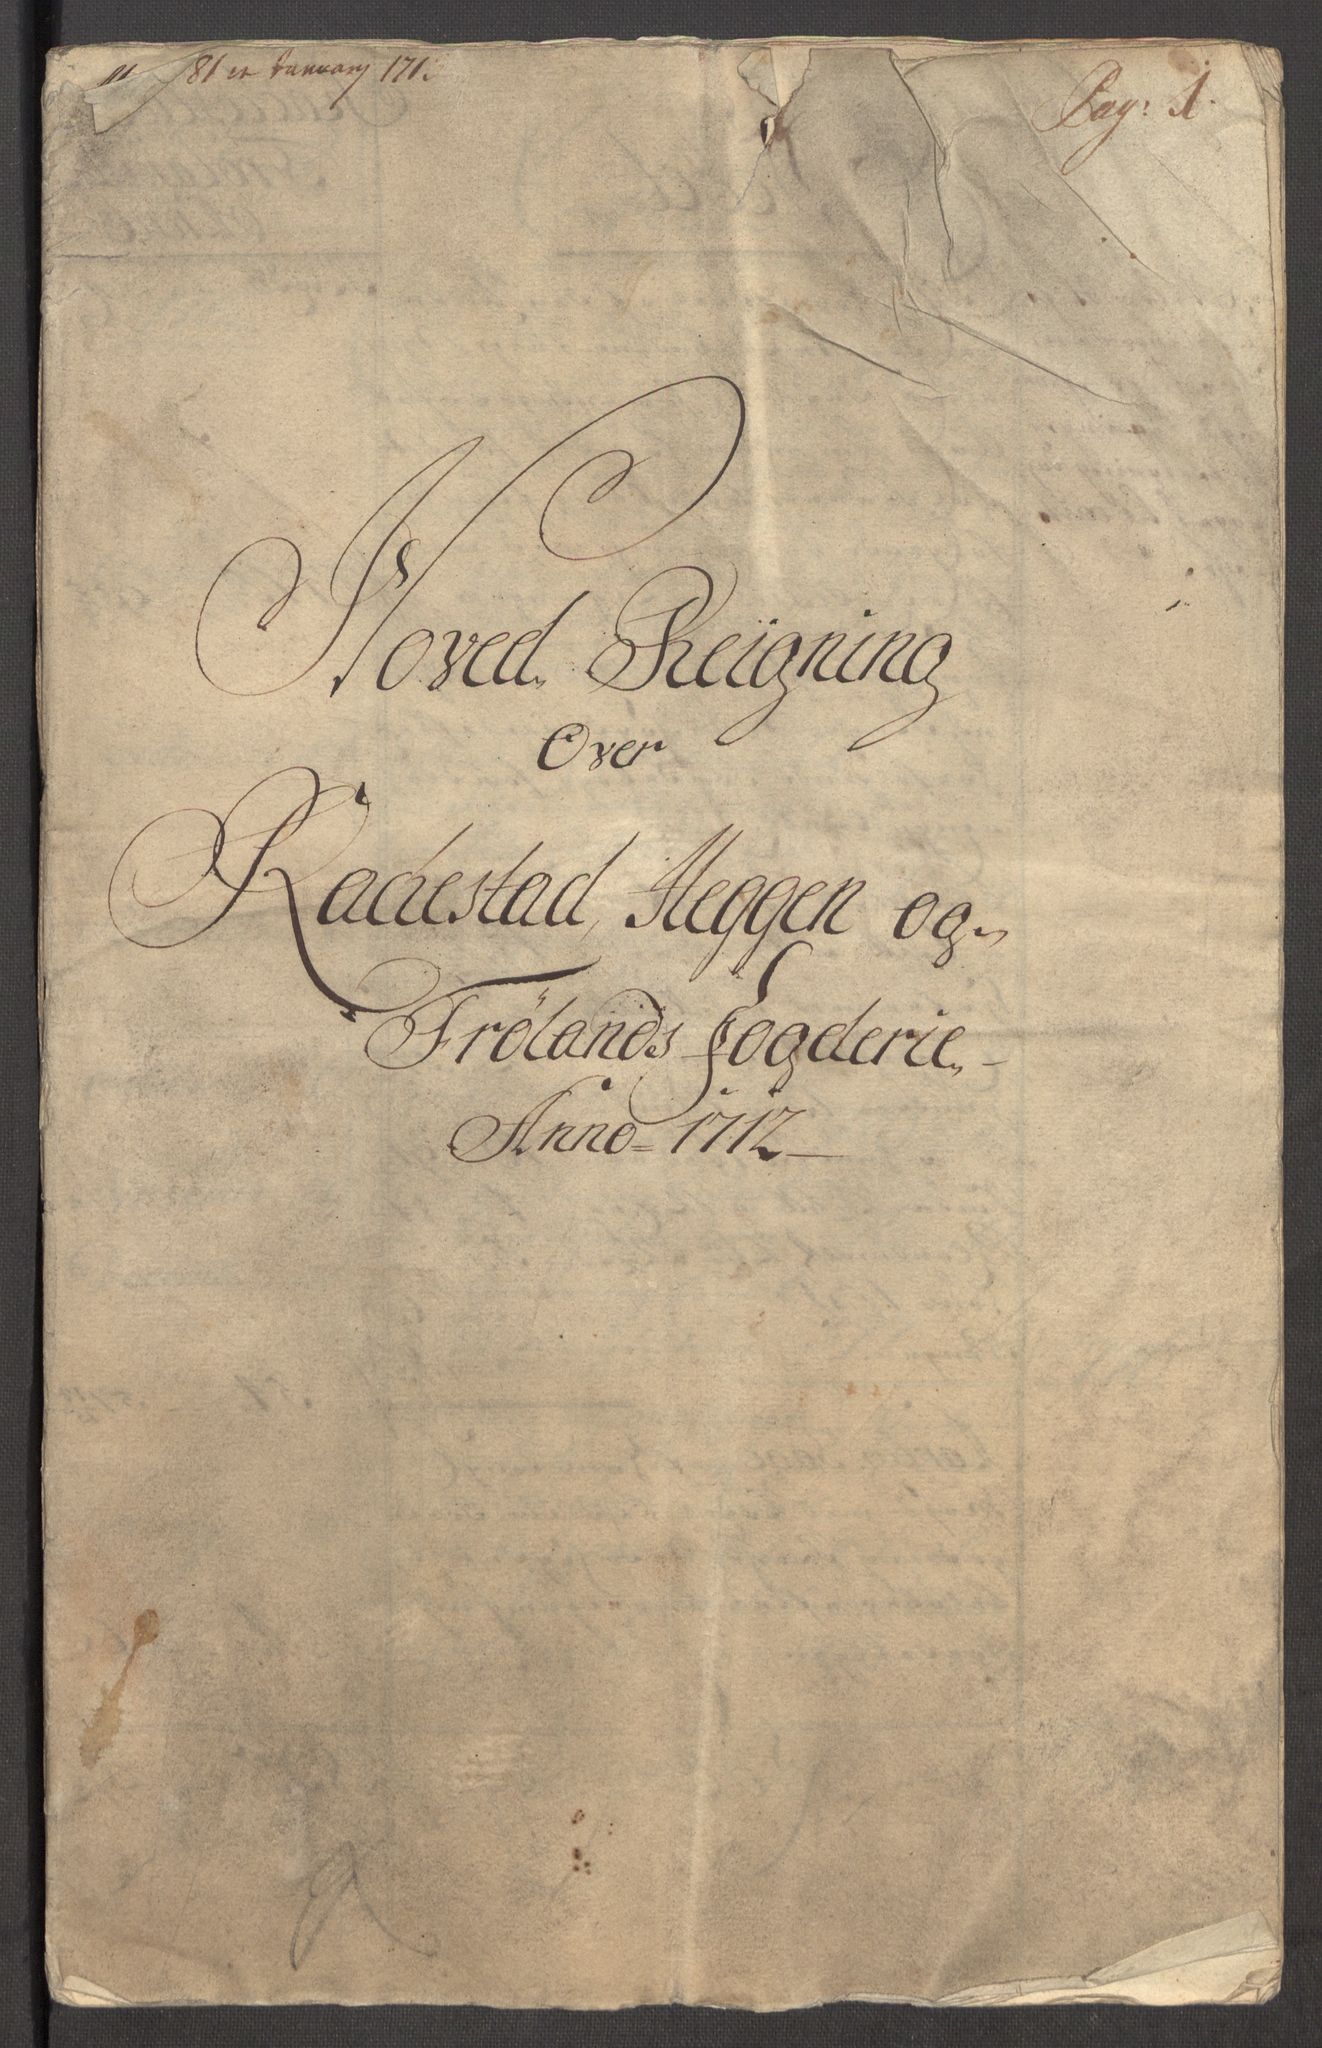 81 et January 171
Pag: 1.
Hoved Reigning
Over
Rachestad, Heggen og
Frölands fogderie
Anno 1712